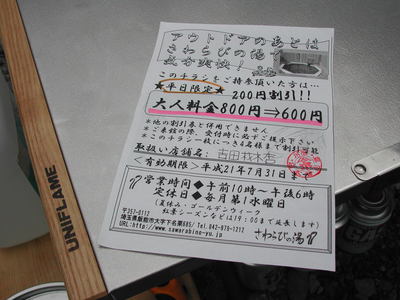 アウトドアのあとは
さわらびの湯で
気分爽快!
このチラシをご持参頂いた方は…
★平日限定★ 200円割引!!
大人料金800円⇒600円
*他の割引券と併用できません
*ご来館の際、受付時に必ずご提示下さい
*このチラシ一枚につき4名様まで割引可能
取扱い店舗名:吉田材木店
<有効期限>平成21年7月31日まで
営業時間◆午前10時~午後6時
定休日◆毎月第1水曜日
(夏休み・ゴールデンウィーク
紅葉シーズンなどは19:00まで延長します)
〒357-0112
埼玉県飯能市大字下名栗685/ Tel.042-979-1212
URL:http://www.sawarabino-yu.jp
さわらびの湯
UNIFLAME